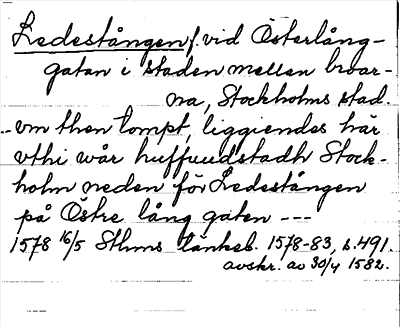 Ledestången f. vid Österlång-
gatan i staden mellan broar-
na, Stockholms stad.
--vm then tompt, liggiendes här
vthi wår huffuudstadh Stock-
holm neden för Ledestången
på Östre lång gaten ---
1578 16/5 Sthms tänkeb. 1578-83, s. 491.
avskr. av 30/4 1582.